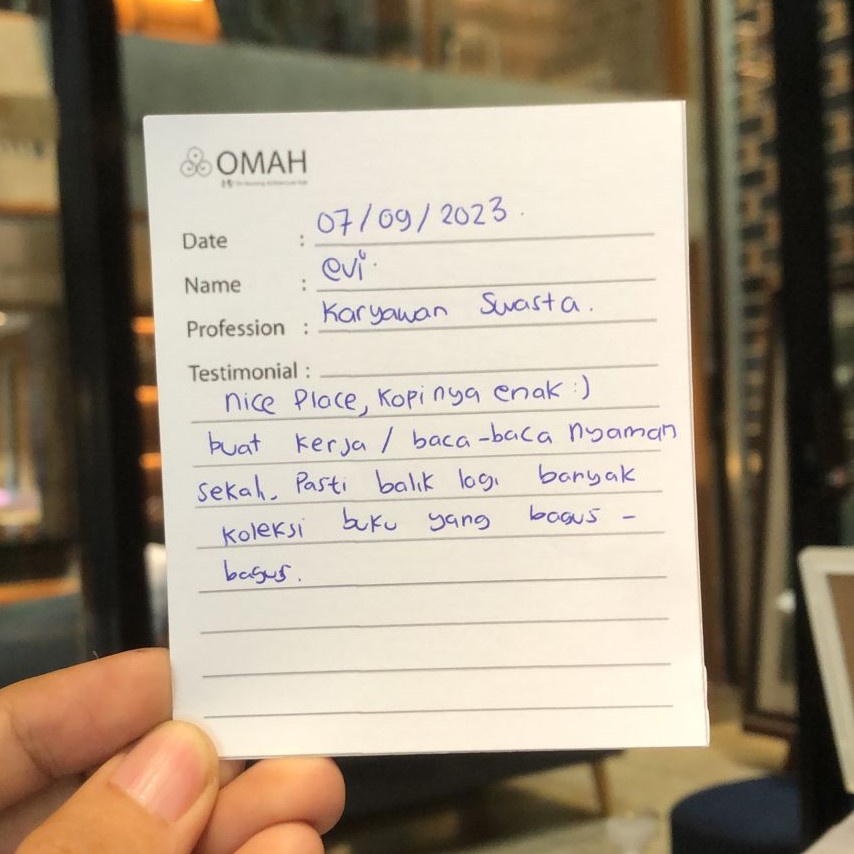 OMAH
Date : 07/09/2023.
Name : evi.
Profession : Karyawan Swasta.
Testimonial :
nice Place, Kopinya enak :)
buat kerja / baca-baca nyaman
sekali. Pasti balik lagi banyak
koleksi buku yang bagus -
bagus.